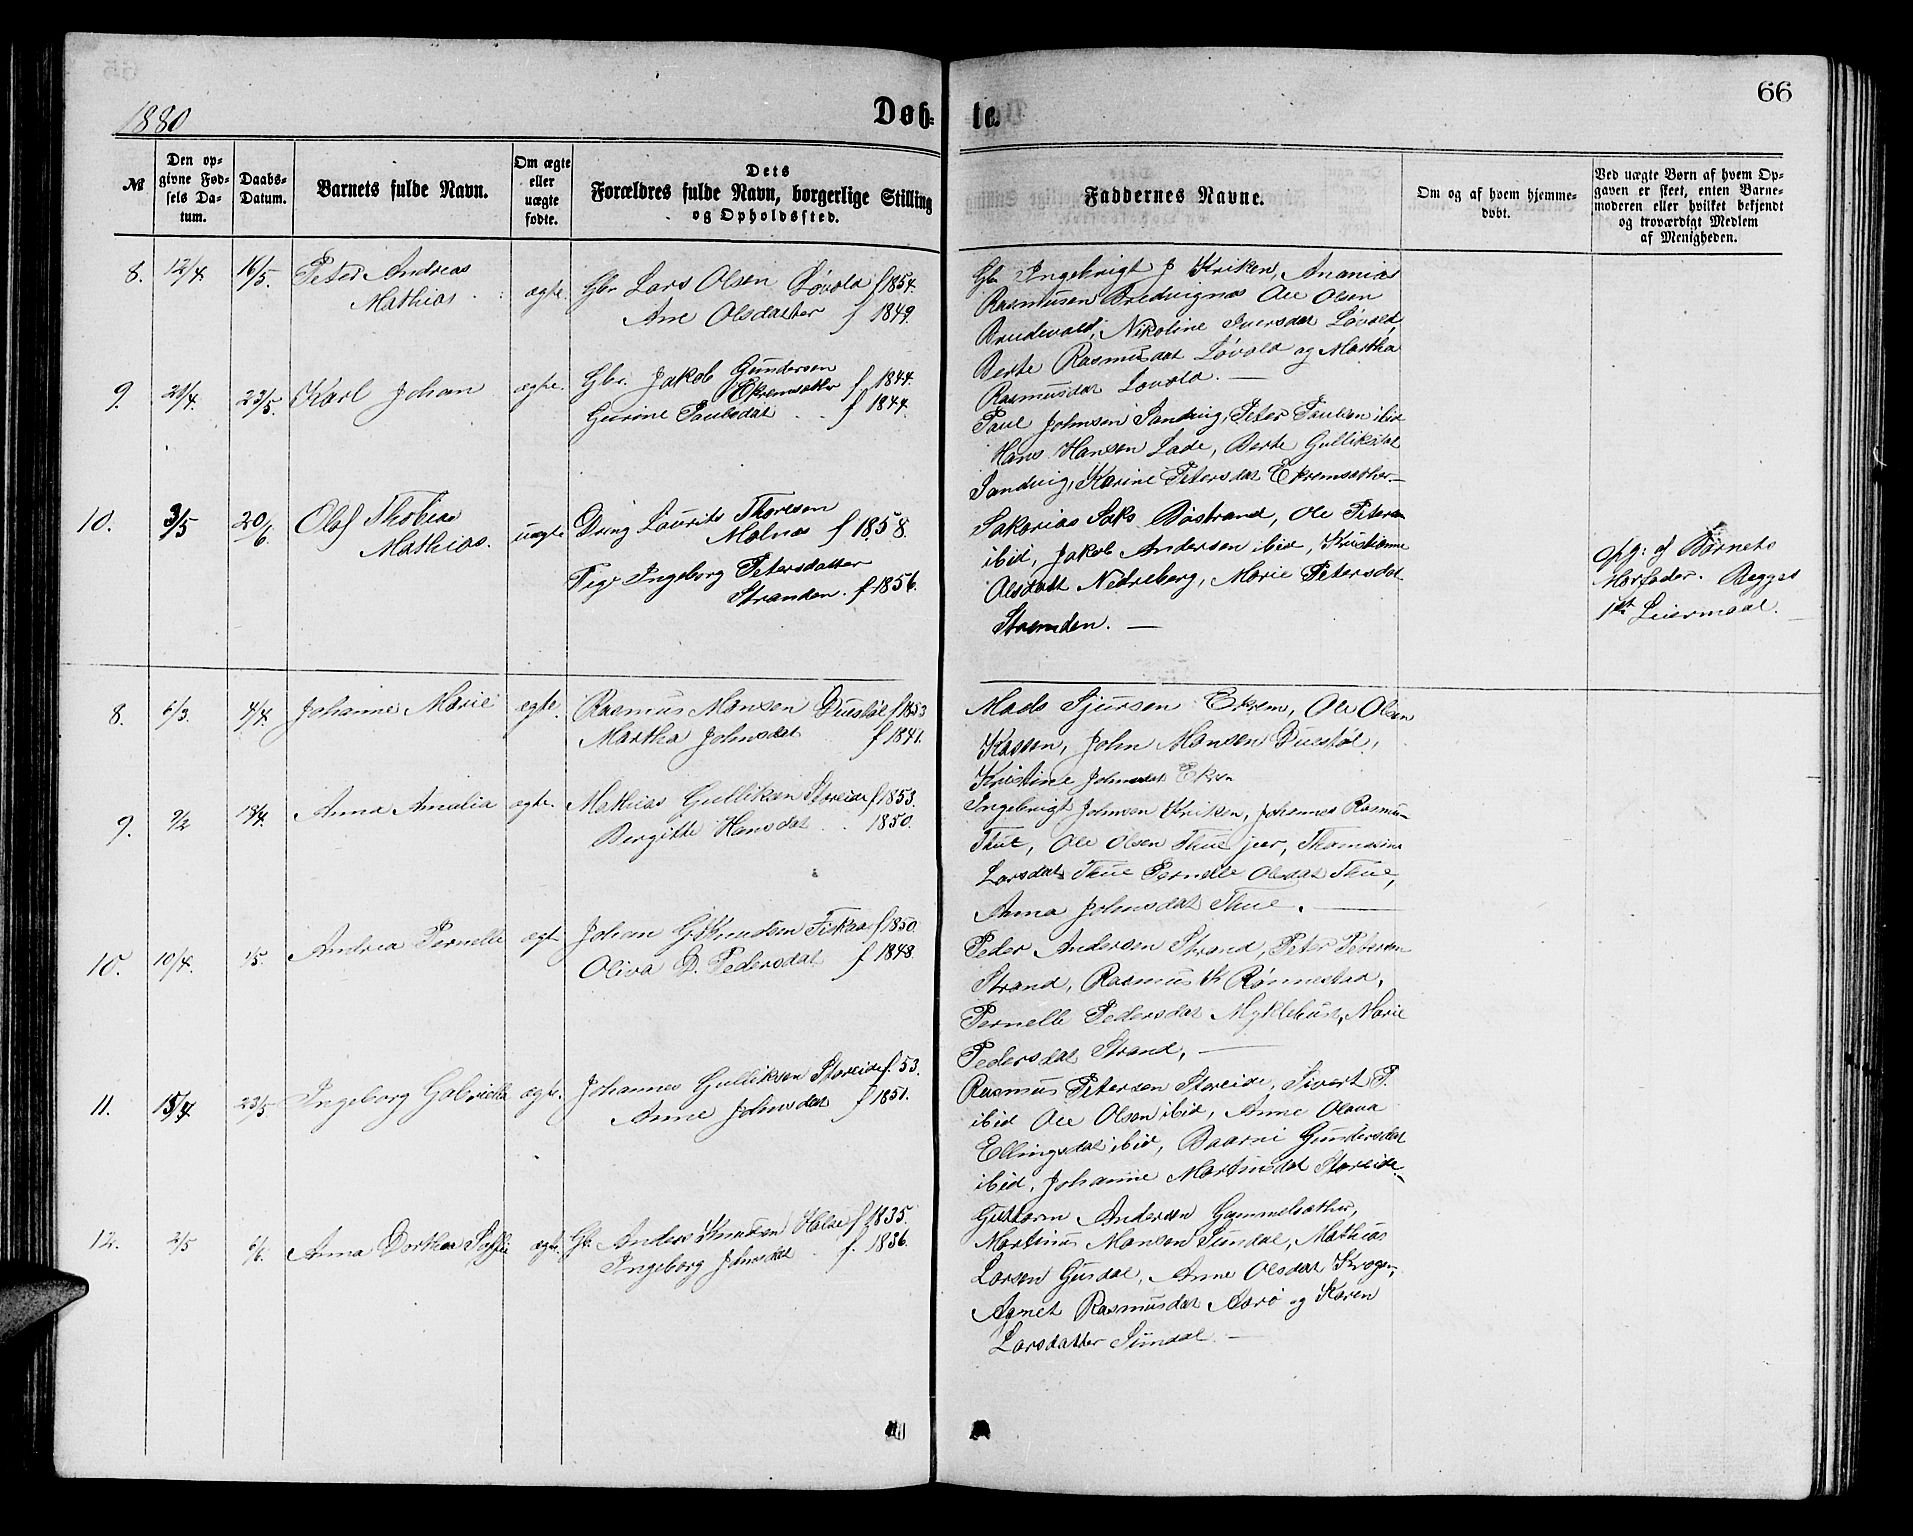 66
1880
Døb= te.
№
Den op-
givne Fød-
sels Da-
tum.
Daabs-
Datum.
Barnets fulde Navn.
Om ægte
eller
uægte
fødte.
Dets
Forældres fulde Navn, borgerlige Stilling
og Opholdssted.
Faddernes Navne.
Om og af hvem hjemme-
døbt.
Ved uægte Børn af hvem Op-
gaven er skeet, enten Barne-
moderen eller hvilket bekjendt
og troværdigt Medlem
af Menigheden.
8. 12/4. 16/5. Peter Andreas
Mathias
ægte.
Gbr. Lars Olsen Løvold f 1854.
Ane Olsdatter f 1849.
Gbr. Ingebrigt J Kriken, Ananias
Rasmusen Bredvignes Ole Olsen
Brudevold, Nikoline Iversdat Løvold,
Berte Rasmusdat Løvold og Martha
Rasmusdat Lovold. —
9. 23/5. Karl Johan
ægte.
Gbr. Jakob Gundersen
Ekremsæther f 1844.
Gurine Paulsdat f 1844.
Paul Johnsen Sandvig, Peter Paulsen ibid
Hans Hansen Lade, Berte Gulliksdat
Sandvig, Karine Petersdat Ekremsæther—
10. 3/5 20/6. Olaf Thobias
Mathias.
uægte
Dreng Laurits Thoresen
Molnes f 1858.
Pige Ingeborg Petersdatter
Stranden. f 1856.
Sakarias Saks Bøstrand, Ole Petersen
ibid, Jakob Andersen ibid, Kristianne
Olsdatt Nedreberg, Marie Petersdat
Stranden. —
opg: af Barnets
Morfader. Begges
1ste Leiermaal.
8. 6/3. 4/4. Johanne Marie
ægte.
Rasmus Monsen Duestøl f 1853
Martha Johnsdat f 1841.
Mads Sjursen Ekrem, Ole Olsen
Kassen, John Monsen Duestøl,
Kristine Johnsdat Ekrem
9. 9/2 18/4. Anna Amalia
ægte.
Mathias Gulliksen Storeide f 1853.
Birgitte Hansdat 1850.
Ingebrigt Johnsen Kriken, Johannes Rasmus-
Thue, Ole Olsen Thue jeer, Thomasine
Larsdat Thue Pernelle Olsdat Thue,
Anna Johnsdat Thue. —
10. 10/4. 1/5. Andrea Pernelle
ægt.
Johan G Knudsen Fiskaa f 1850.
Oliva D. Pedersdat f 1848.
Peder Andersen Strand, Peter Petersen
Strand, Rasmus K Rønnestad,
Pernelle Pedersdat Myklebust, Marie
Pedersdat Strand, —
11. 15/4 23/5 Ingeborg Gabrielle
ægte.
Johannes Gulliksen Storeide f. 53.
Anne Johnsdat f 1851.
Rasmus Petersen Storeide, Sivert P.
ibid Ole Olsen ibid, Anne Olava
Ellingsdat ibid, Gundersdat
ibid, Johanne Martinsdat Storeide—
12. 2/5 6/6. Anna Dorthea Soffie
ægte.
Gbr. Anders Knudsen Halse f 1835.
Ingeborg Johnsdat f. 1836.
Guttorm Andersen Gammelsæther,
Martinus Monsen Sundal, Mathias
Larsen Gusdal, Anne Olsdat Krogen,
Agnet Rasmusdat Aarø og Karen
Larsdatter Sundal. —